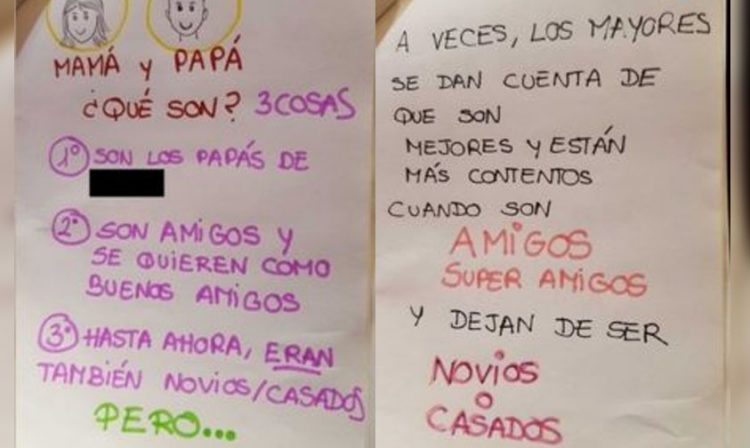 MAMÁ y PAPÁ
¿QUÉ SON? 3COSAS
1º SON LOS PAPÁS DE
2º SON AMIGOS Y
SE QUIEREN COMO
BUENOS AMIGOS
3º HASTA AHORA, ERAN
TAMBIÉN NOVIOS/CASADOS
PERO...
A VECES, LOS MAYORES
SE DAN CUENTA DE
QUE SON
MEJORES Y ESTÁN
MÁS CONTENTOS
CUANDO SON
AMIGOS
SUPER AMIGOS
Y DEJAN DE SER
NOVIOS
O
CASADOS